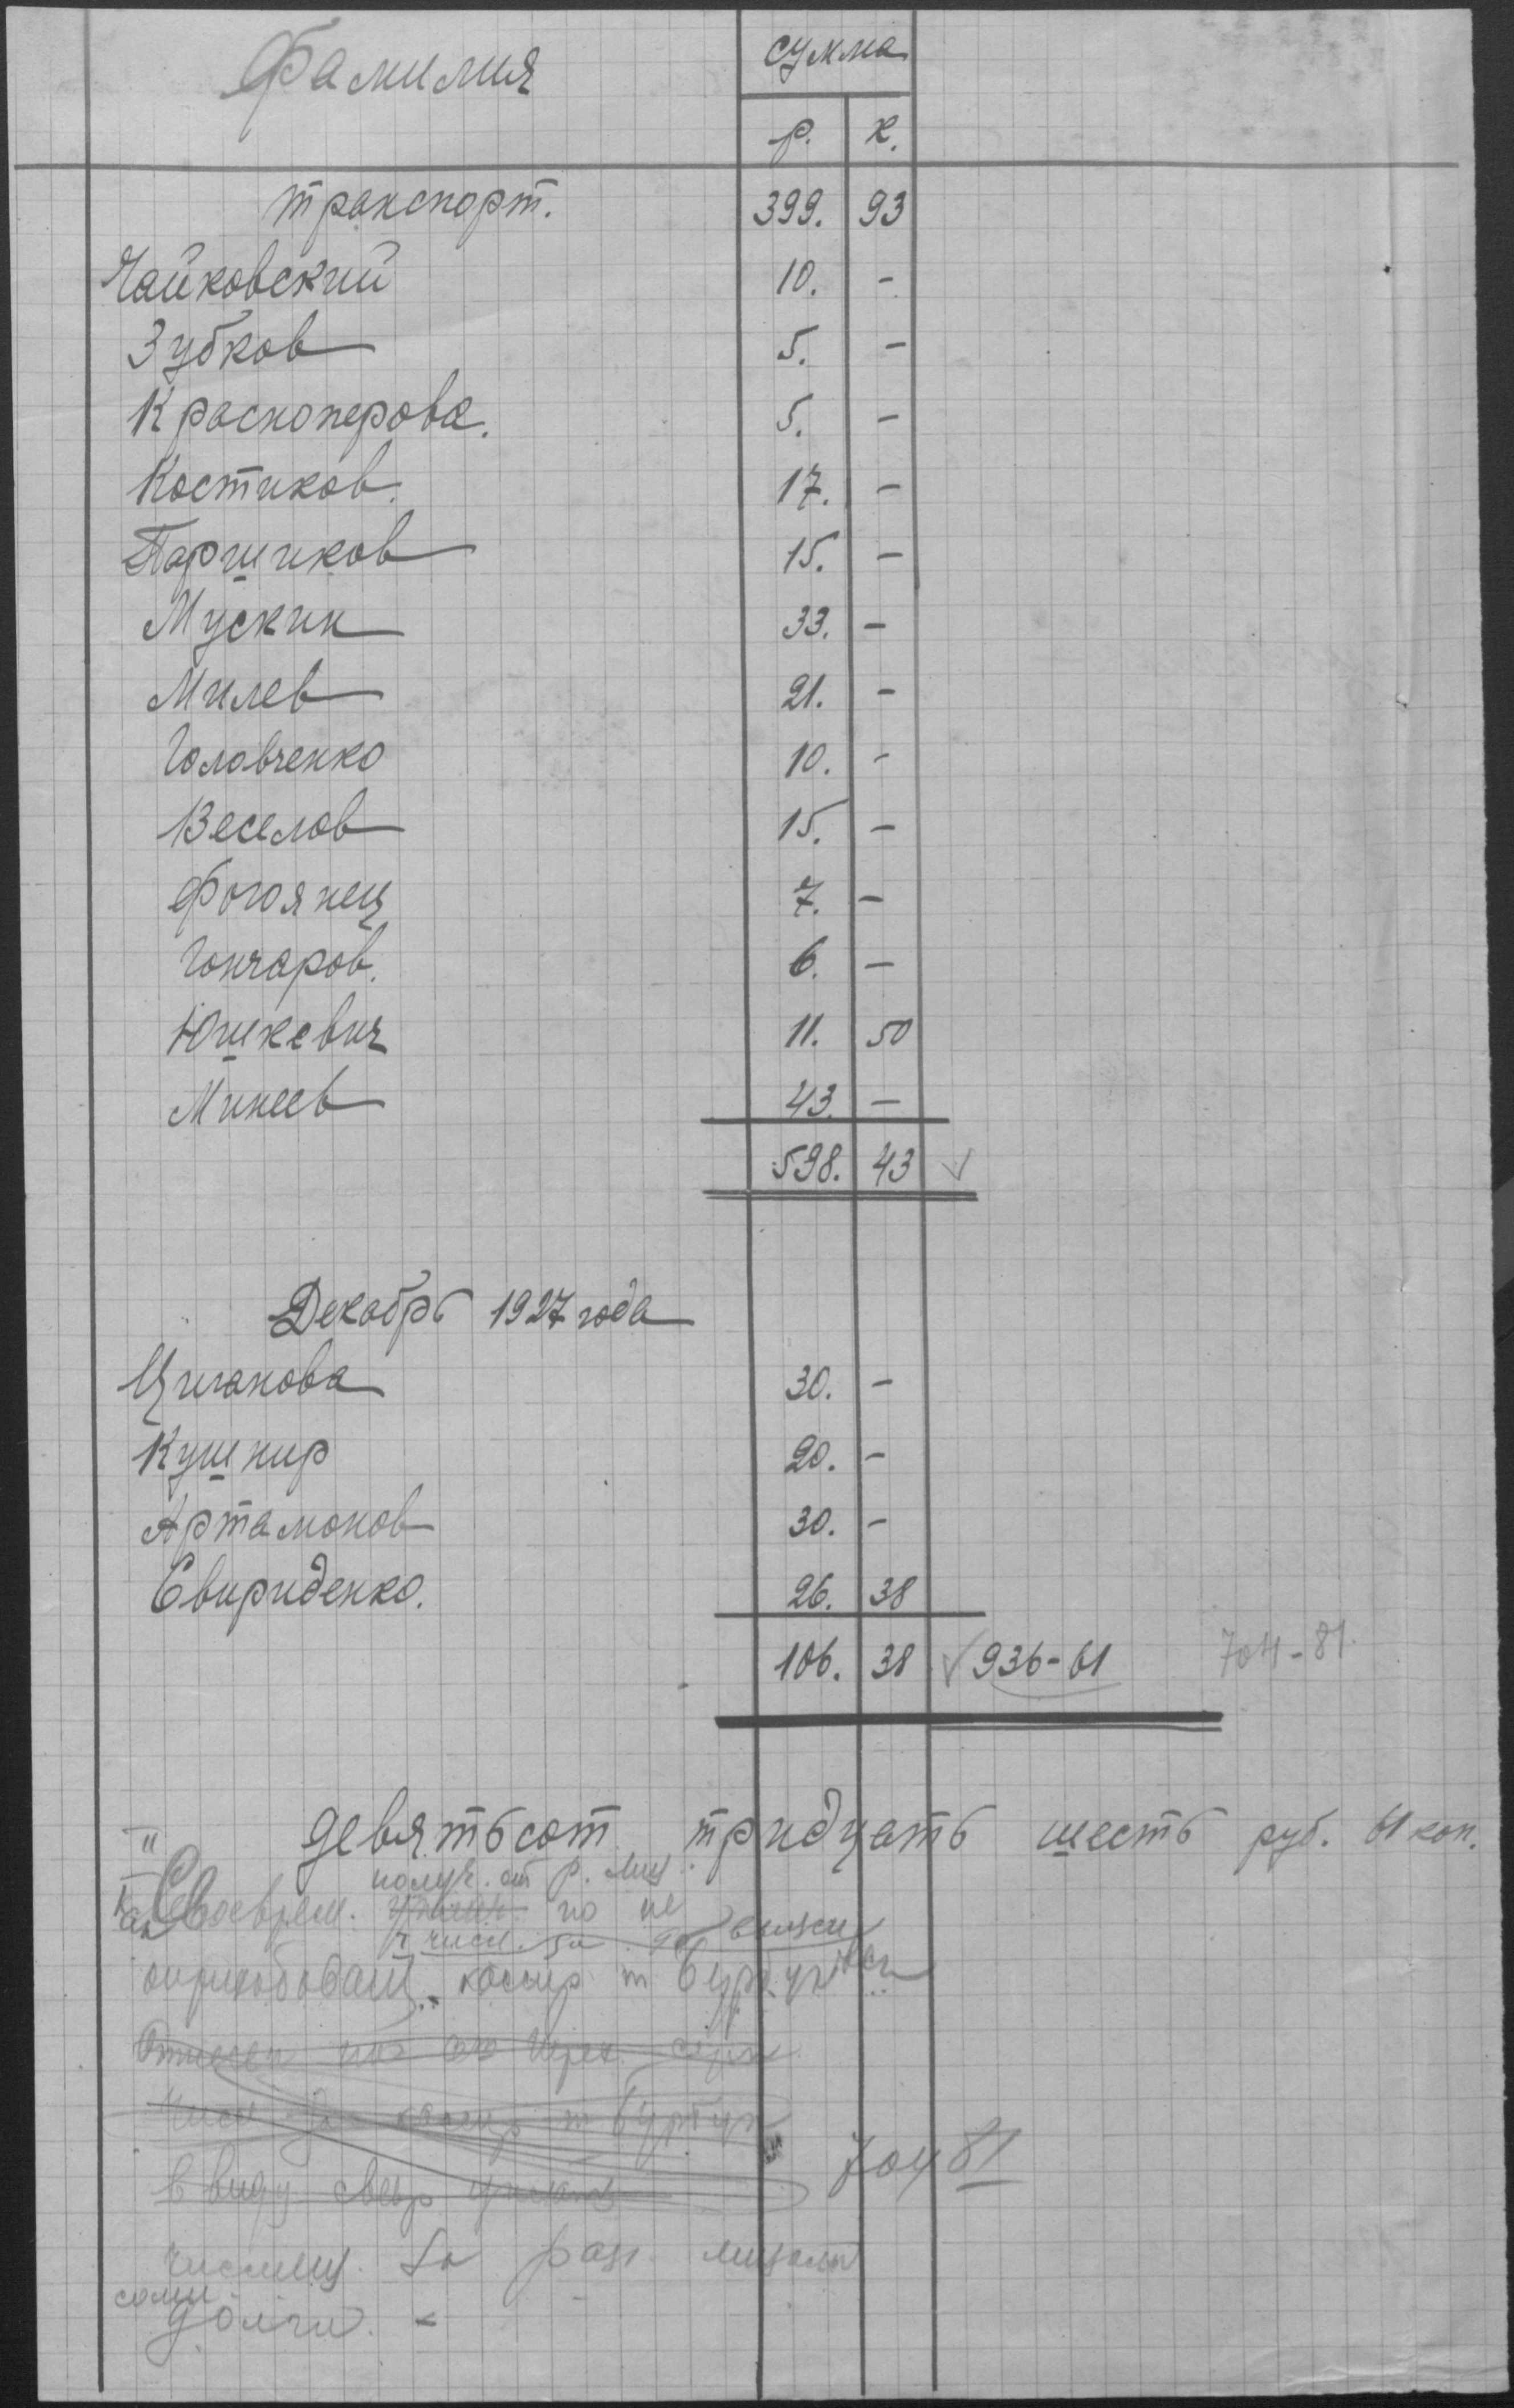 Фамилия сумма
р. к.
транспорт. 399. 93
Чайковский 10. -
Зубков 5. -
Красноперова. 5. -
Костиков. 17. -
Паршиков 15. -
Мускин 33. -
Милев 21. -
Головченко 10. -
Веселов 15. -
Фогоянец 7. -
Гончаров. 6. -
Юшкевич 11. 50
Минеев 43. -
598. 43 ✓
Декабрь 1927 года
Циганова 30. -
Кушнир 20. -
Артамонов 30. -
Свириденко. 26. 38
106. 38 ✓ 936-61 704-81.
девятьсот тридцать шесть руб. 61 коп.
получ. от р. лиц
Своеврем. но не
кассир т
в виду
704 81
за раз. лицами
долги. -